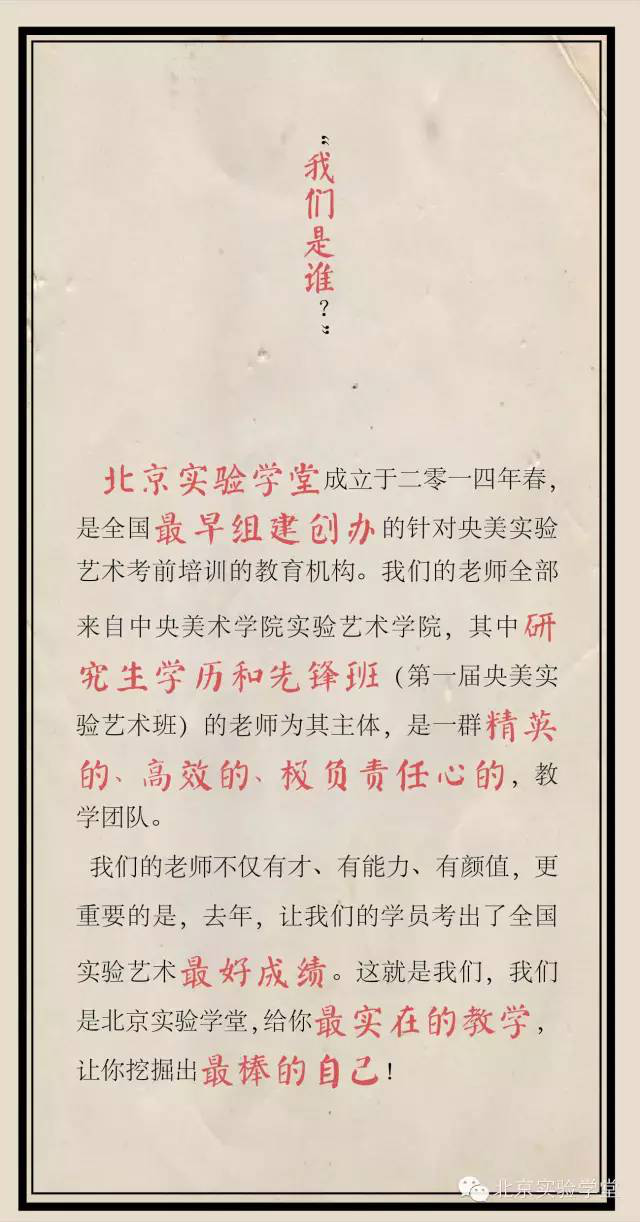 “我们是谁？”
北京实验学堂成立于二零一四年春，
是全国最早组建创办的针对央美实验
艺术考前培训的教育机构。我们的老师全部
来自中央美术学院实验艺术学院，其中研
究生学历和先锋班（第一届央美实
验艺术班）的老师为其主体，是一群精英
的、高效的、极负责任心的，教
学团队。
我们的老师不仅有才、有能力、有颜值，更
重要的是，去年，让我们的学员考出了全国
实验艺术最好成绩。这就是我们，我们
是北京实验学堂，给你最实在的教学，
让你挖掘出最棒的自己！
北京实验学堂